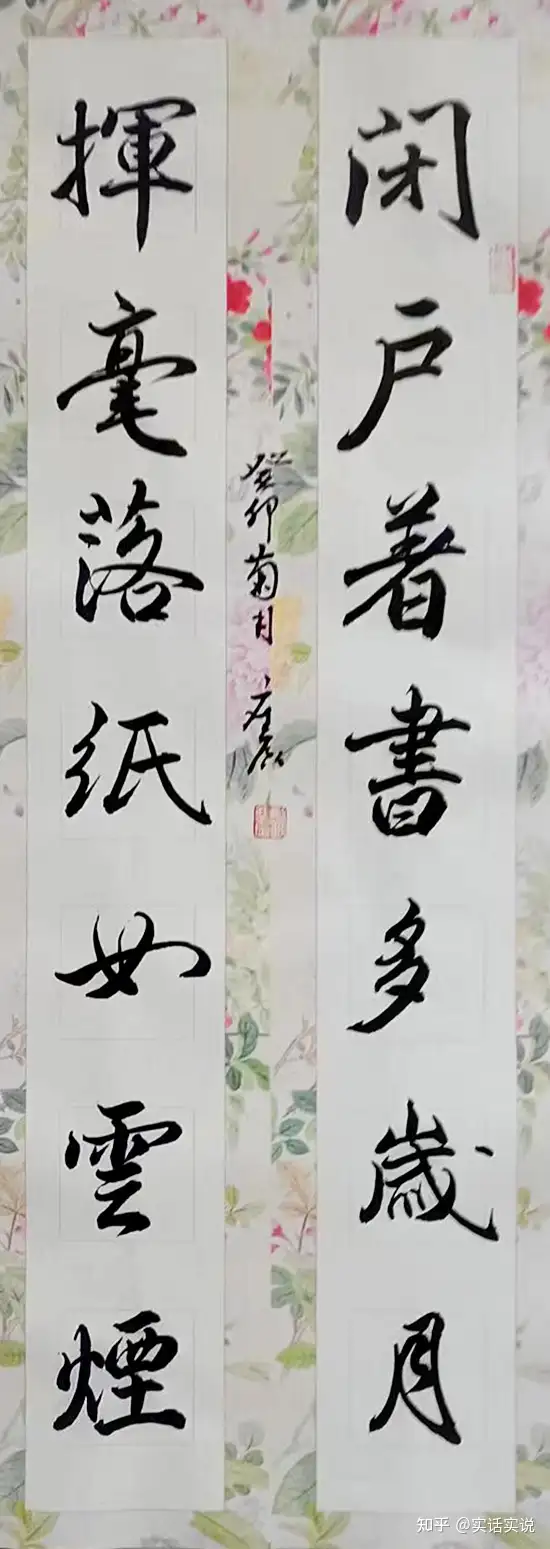 闭户着書多歲月
揮毫落紙如雲煙
癸卯菊月
知乎 @实话实说